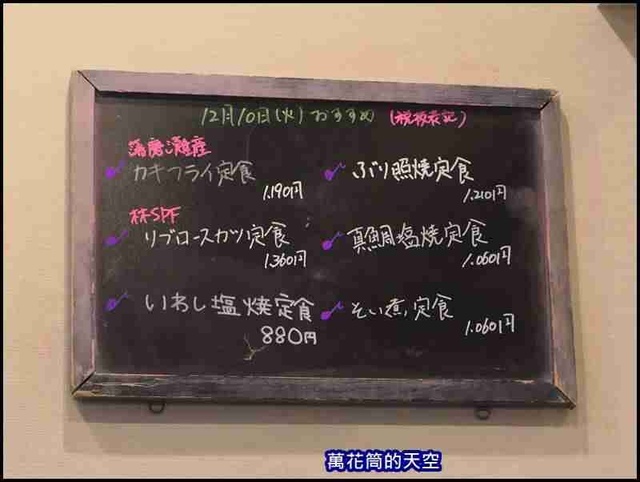 12月10日(火)おすすめ (税抜表記)
播磨灘産
カキフライ定食
1.190円
ぶり照焼定食
1.210円
林SPF
リブロースカツ定食
1.360円
真鯛塩焼定食
1.060円
いわし塩焼定食
880円
そい煮定食
1.060円
萬花筒的天空